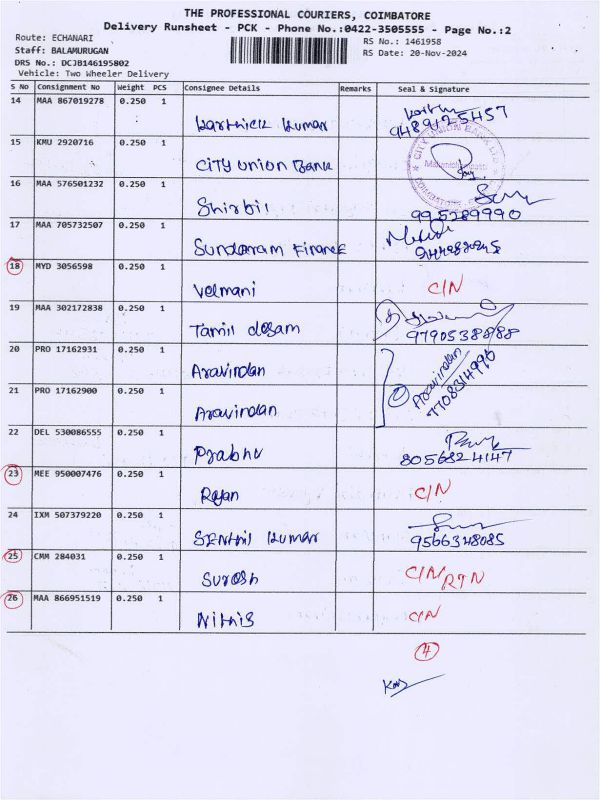 THE PROFESSIONAL COURIERS, COIMBATORE
Delivery Runsheet - PCK - Phone No.:0422-3505555 - Page No.:2
Route: ECHANARI
RS No.: 1461958
Staff: BALAMURUGAN
RS Date: 20-Nov-2024
DRS No.: DCJB146195802
Vehicle: Two Wheeler Delivery
S No Consignment No Weight PCS Consignee Details Remarks Seal & Signature
14 MAA 867019278 0.250 1 Karthick Kumar 9489125457
15 KMU 2920716 0.250 1 City Union Bank CITY UNION BANK LTD COIMBATORE
16 MAA 576501232 0.250 1 Shirbil 995289990
17 MAA 705732507 0.250 1 Sundaram Finance
18 MYD 3056598 0.250 1 Velmani C/N
19 MAA 302172838 0.250 1 Tamil desam 9790538888
20 PRO 17162931 0.250 1 Aravindan Aravindan
21 PRO 17162900 0.250 1 Aravindan 7708314990
22 DEL 530086555 0.250 1 Prabhu 8056824147
23 MEE 950007476 0.250 1 Rajan C/N
24 IXM 507379220 0.250 1 Senthil Kumar 9566348085
25 CMM 284031 0.250 1 Suresh C/N RTN
26 MAA 866951519 0.250 1 Nithis C/N
4